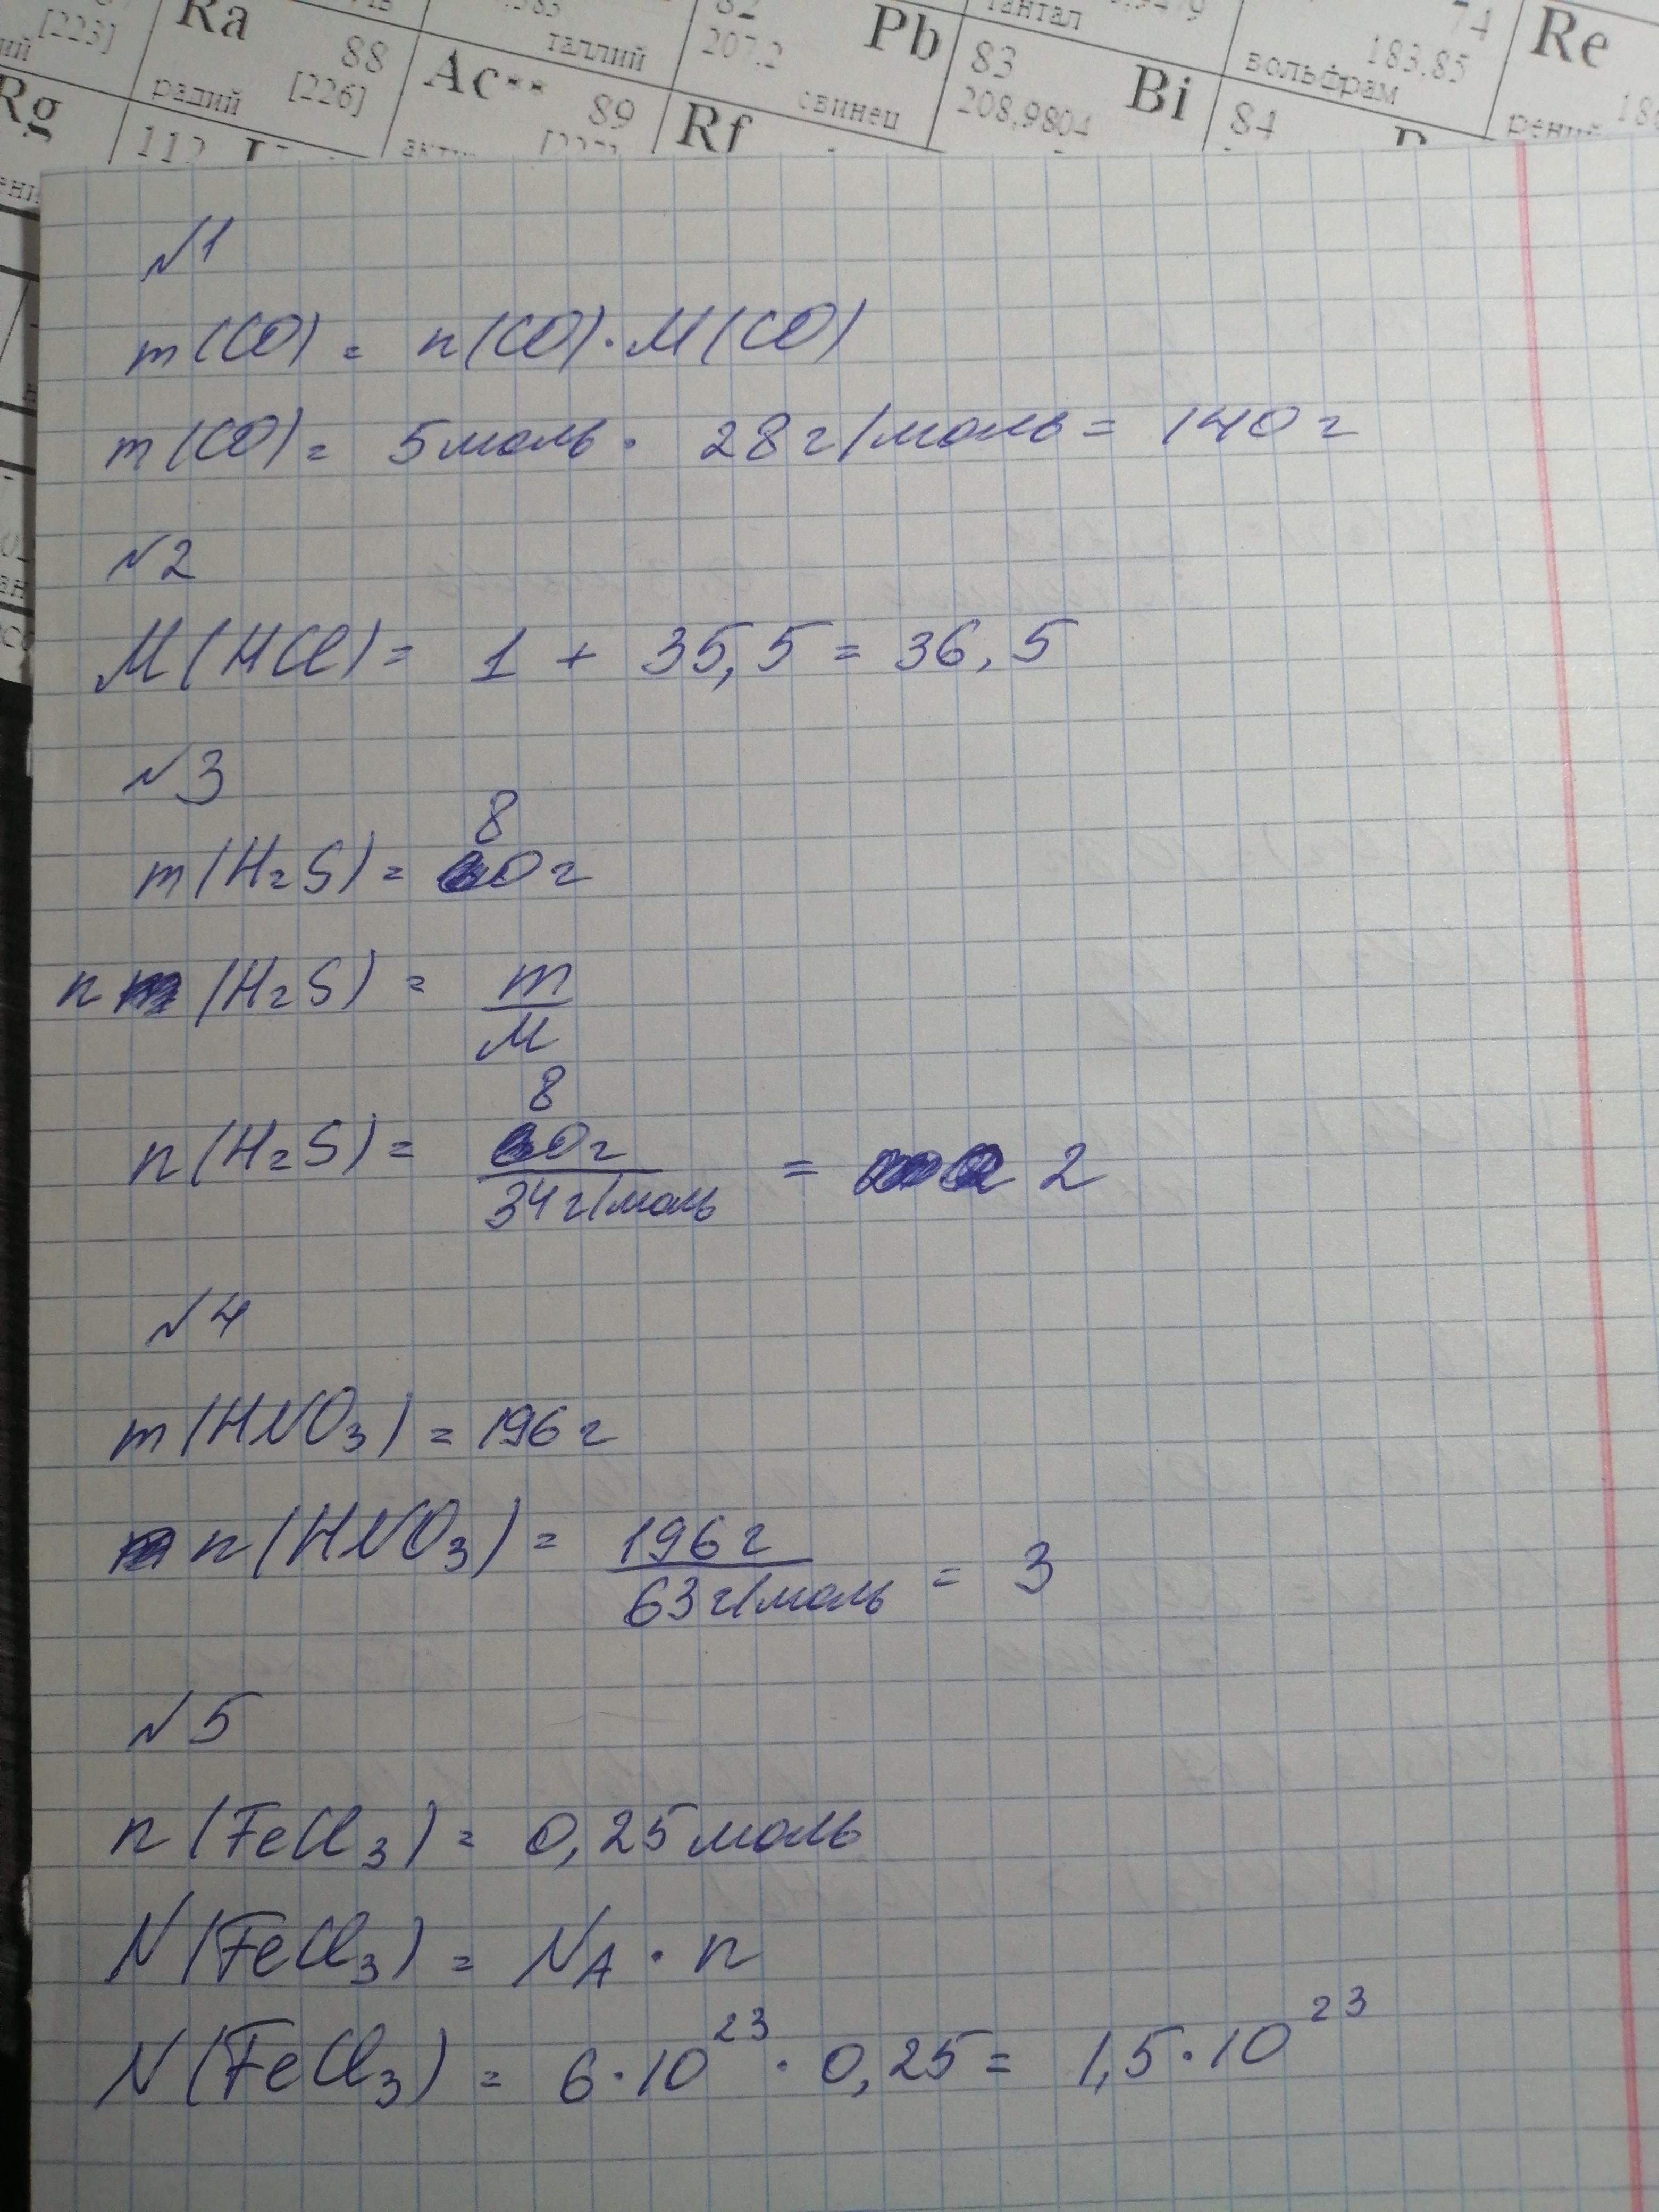 [223]
Ra
88
радий
[226]
Rg
112
Ac**
89
таллий
82
207,2
Pb
свинец
Rf
тантал
83
208,9804
Bi
74
183,85
вольфрам
84
Re
рений
№1
m(CO) = n(CO)·M(CO)
m(CO) = 5моль · 28г/моль = 140г
№2
M(HCl) = 1 + 35,5 = 36,5
№3
8
m(H₂S) = 0г
n (H₂S) = m
M
8
n(H₂S) = 0г = 2
34г/моль
№4
m(HNO₃) = 196г
n(HNO₃) = 196г = 3
63г/моль
№5
n(FeCl₃) = 0,25моль
N(FeCl₃) = NA · n
N(FeCl₃) = 6·10²³ · 0,25 = 1,5·10²³